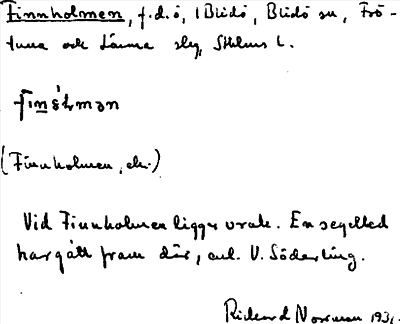 Finnholmen, f.d. ö, 1 Blidö, Blidö sn, Frö-
tuna och Länna slg, Sthlms l.
(Finnholmen, ek.)
Vid Finnholmen ligger vrak. En segelled
har gått fram där, enl. V. Söderling.
Rickard Norrman 193